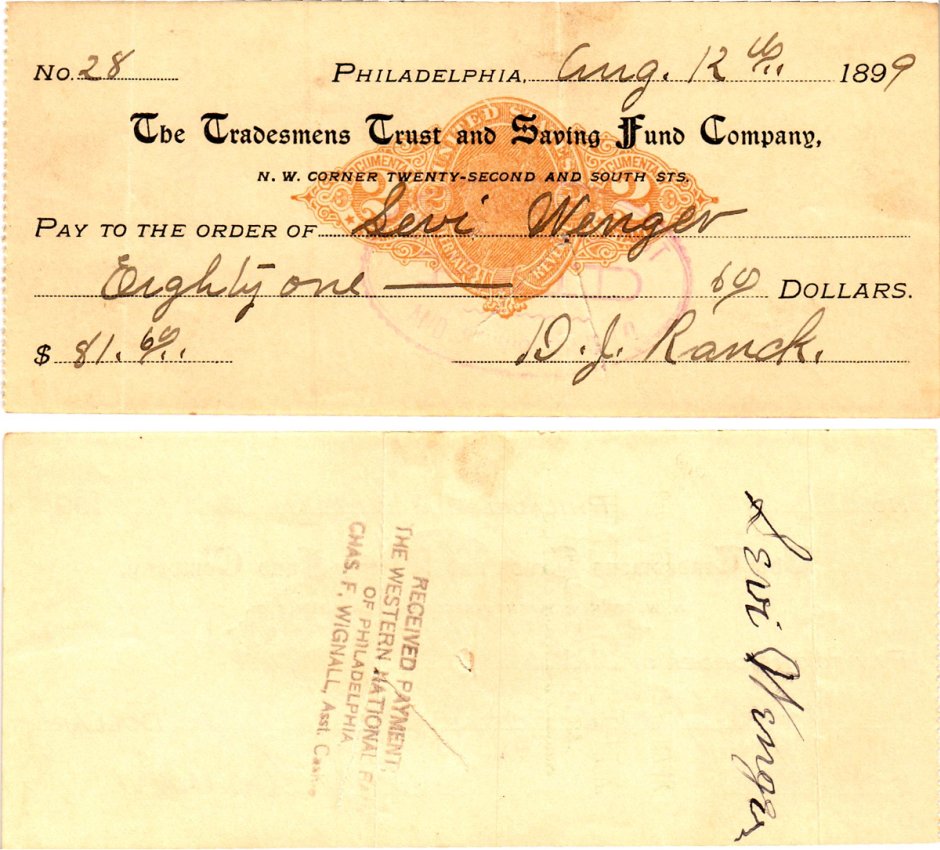 No. 28 PHILADELPHIA, Aug. 12th 1899
The Tradesmens Trust and Saving Fund Company,
N. W. CORNER TWENTY-SECOND AND SOUTH STS.
PAY TO THE ORDER OF Levi Wenger
Eighty one 60 DOLLARS.
$ 81.60 D. J. Ranck.
UNITED STATES
DOCUMENTARY
2 2
RECEIVED PAYMENT,
THE WESTERN NATIONAL
OF PHILADELPHIA
CHAS. F. WIGNALL, Asst.
Levi Wenger